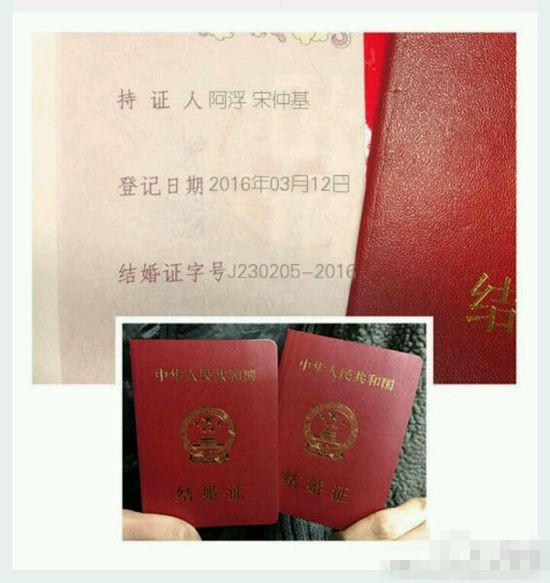 持证人 阿浮 宋仲基
登记日期 2016年03月12日
结婚证字号 J230205-2016
结
中华人民共和国
结婚证
中华人民共和国
结婚证